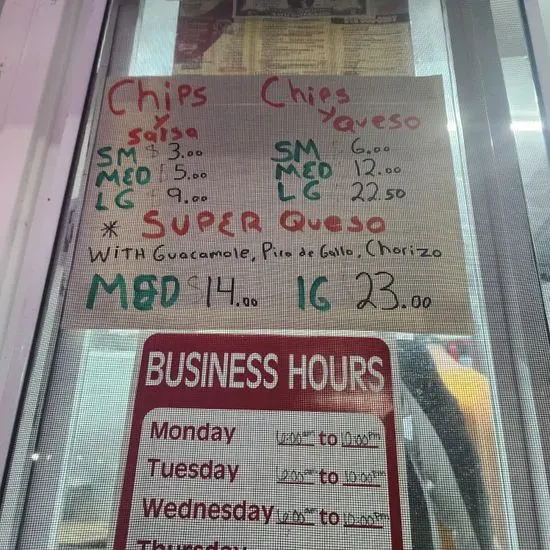 Chips Chips
y y
Salsa Queso
SM $3.00 SM 6.00
MED $5.00 MED 12.00
LG 9.00 LG 22.50
* SUPER Queso
WITH Guacamole, Pico de Gallo, Chorizo
MED $14.00 lG 23.00
BUSINESS HOURS
Monday to 10:00PM
Tuesday to 10:00PM
Wednesday to 10:00PM
Thursday